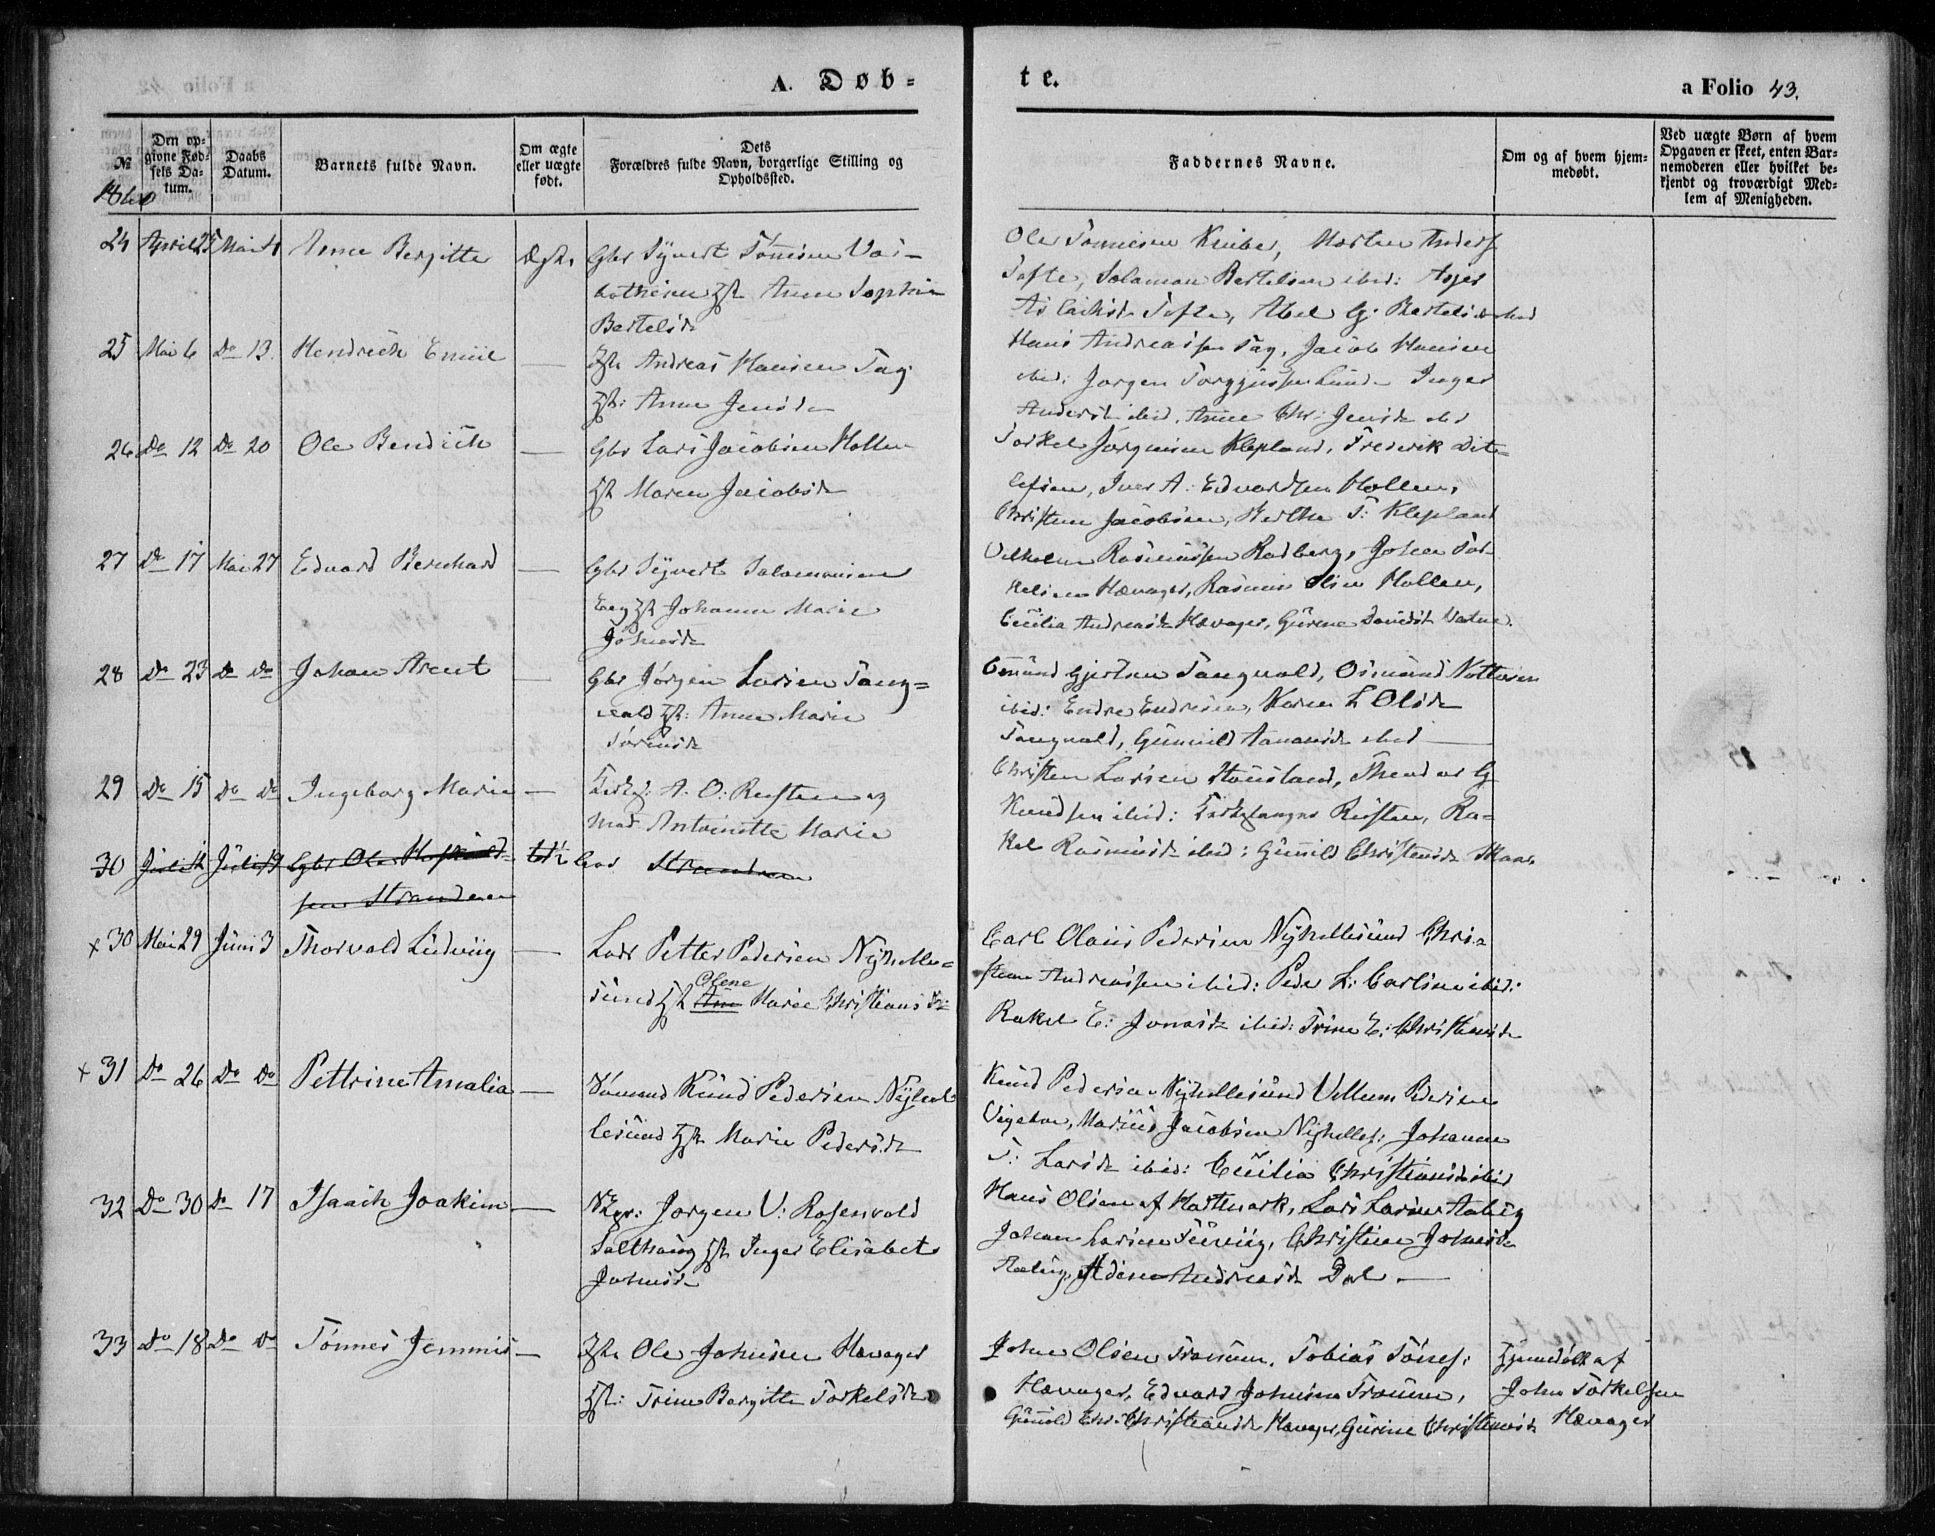 A. Døb=
te.
a Folio 43.
№
Den op-
givne Fød-
sels Da-
tum.
Daabs
Datum.
Barnets fulde Navn.
Om ægte
eller uægte
født.
Dets
Forældres fulde Navn, borgerlige Stilling og
Opholdssted.
Faddernes Navne.
Om og af hvem hjem-
medøbt.
Ved uægte Børn af hvem
Opgaven er skeet, enten Bar-
nemoderen eller hvilket be-
kjendt og troværdigt Med-
lem af Menigheden.
24 April 25 Mai 4 Anne Bergitte Ægte Gbr Syvert Tønnesen
Anne Sophie
Bertelsd
Ole Tønnesen
Tofte, Salamon Bertelsen ibid: Asger
Tofte, Abel G. Bertelsd ibid
25 Mai 6 Do 13. Hendrich Emiil — Andreas Hansen Tag
Anne Jensd
Hans Andreassen Tag, Jacob Hansen
ibid: Jørgen Lunde Inger
Andersd ibid, Anne Chr: Jensd ibid
26 Do 12 Do 20 Ole Bendich — Gbr Lars Jacobsen Hollen
Maren Jacobsd
Torkel Jørgensen Klepland, Frederik Dit-
lefsen, Iver A. Edvardsen Hollen,
Christen Jacobsen, Berthe T: Klepland
27 Do 17 Mai 27 Edvard Bernhard — Gbr Syvert Salamonsen
Eeg Johanne Marie
Johnsd
Vilhelm Rasmussen Rodberg, Johan Tor-
kelsen Hævager, Rasmus Olsen Hollen,
Cecilia Andreasd Hævager, Gurine Davidsd Vatne.
28 Do 23 Do Do Johan Arent — Gbr Jørgen Larsen Tang=
vald Anne Marie
Sørensd
Omund Gjertsen Tangvald, Osmund Nottesen
ibid: Endre Endresen, Karen L Olsd
Tangvald, Gunnild Aanensd ibid —
29 Do 15 Do Do Ingeborg Marie — Kirkes: A. O: Reisten og
Mad Antoinette Marie
Christen Larsen Stausland, Theodor G
Knudsen ibid: Kirkesanger Reisten, Ra-
kel Rasmusd ibid: Gunild Christensd
30 Juli 12 Juli 19 Gbr Ole
sen Strandenen
Strandenen
x 30 Mai 29 Juni 3 Thorvald Ludviig — Lods Petter Pedersen Nyhelle-
sund Ane Olene Marie Christiansd
Carl Olaus Pedersen Nyhellesund Chri-
sten Andreassen ibid: Peder L: Carlsen ibid:
Rakel E: Jonasd ibid: Trine E: Christensd
x 31 Do 26 Do Do Pettrine Amalia — Sømand Knud Pedersen Nyhel
lesund Marie Pedersd
Knud Pedersen Nyhellesund Vellum Pedersen
Vigeboe, Marius Jacobsen Nyhelles: Johanne
T: Larsd ibid: Cecilia Christiansd ibid
32 Do 30 Do 17 Isaach Joakim — Jørgen V: Rosenvold
Salthaug Inger Elisabet
Johnsd
Hans Olsen af Hartmark, Lars Larsen Aabig
Johan Larsen Christine Johnsd
Adine Andreasd Dal —
33 Do 18 Do Do Tønnes Jemmis — Ole Johnsen Hævager
Trine Bergitte Torkelsd
John Olsen Tronum, Tobias Tønes:
Hævager, Edvard Johnsen Tronum,
Gunvold Chr: Christiansd Hævager, Gurine Christensd
Hjemdøbt af
John Torkelsen
Hævager